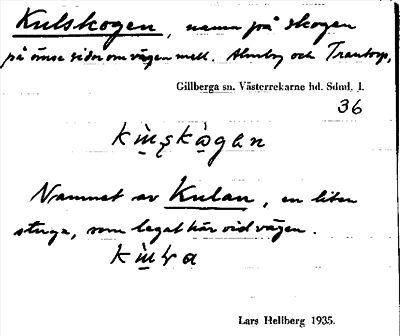 Kulskogen, namn på skogen
på ömse sidor om vägen mell. Almby och Trantorp,
Gillberga sn. Västerrekarne hd. Sdml. l.
36
Namnet av Kulan, en liten
stuga, som legat här vid vägen.
Lars Hellberg 1935.